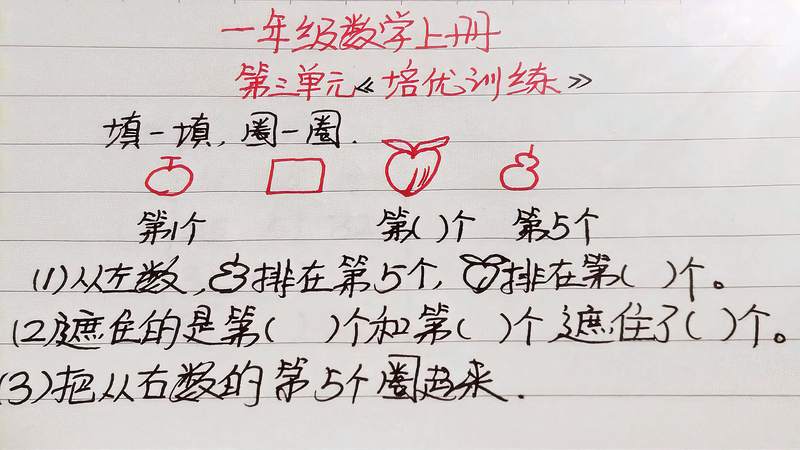 一年级数学上册
第三单元《培优训练》
填一填,圈一圈.
第1个 第()个 第5个
(1)从左数,排在第5个,排在第()个。
(2)遮住的是第()个和第()个遮住了()个。
(3)把从右数的第5个圈起来.